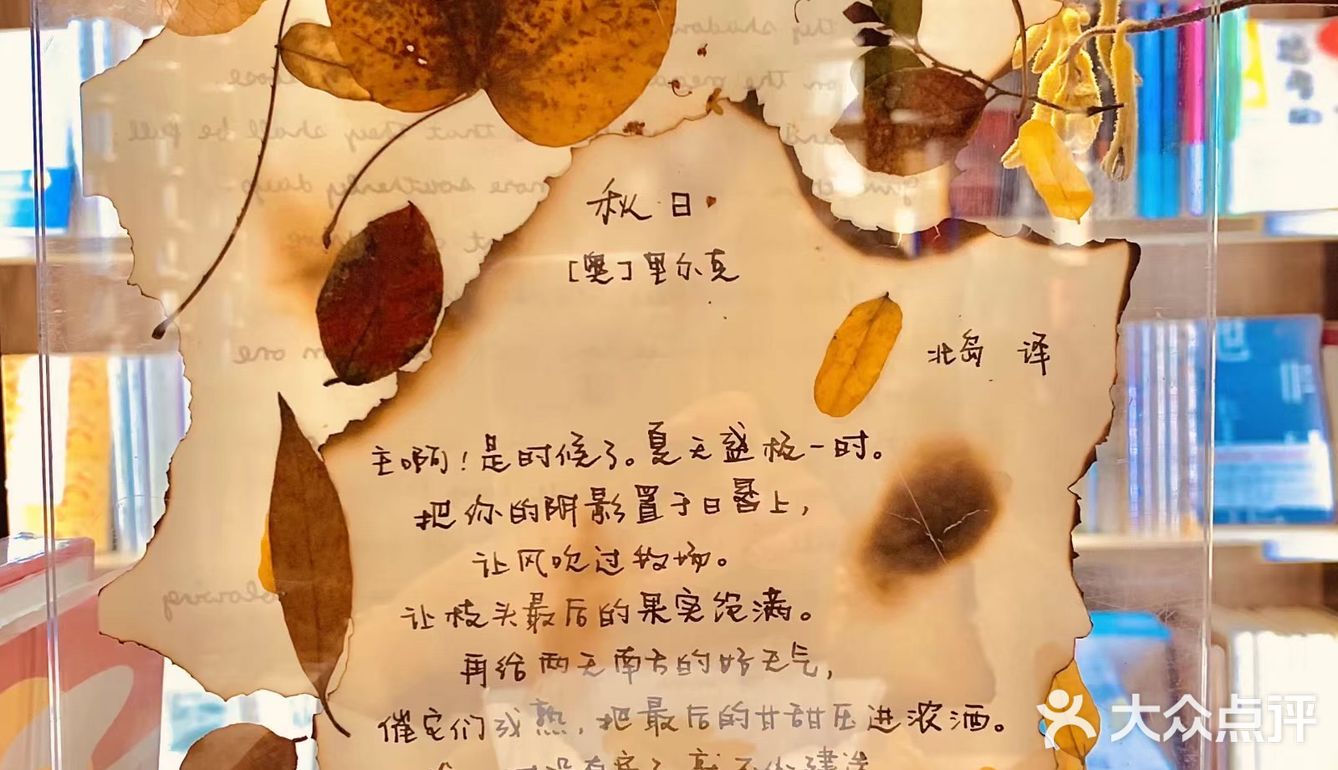 they shadow
on the loose
that they shall be full
more southerly days
秋日
[奥]里尔克
北岛 译
主啊!是时候了。夏天盛极一时。
把你的阴影置于日晷上,
让风吹过牧场。
让枝头最后的果实饱满。
再给两天南方的好天气,
blowing
催它们成熟,把最后的甘甜压进浓酒。
没有房子,就不必建造
大众点评